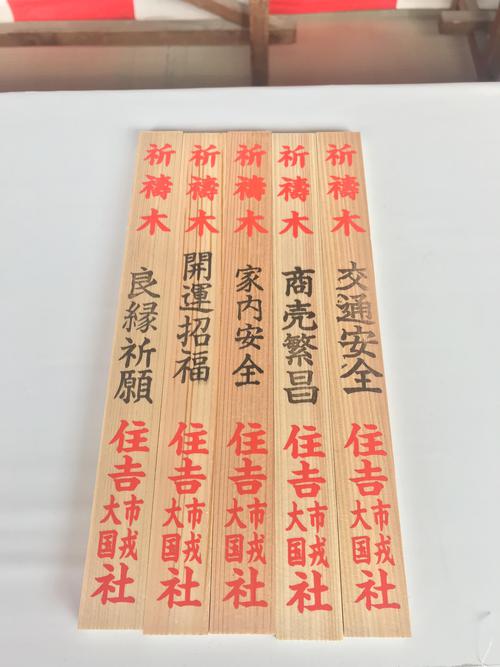 祈禱木
交通安全
住吉
市戎
大国
社
祈禱木
商売繁昌
住吉
市戎
大国
社
祈禱木
家内安全
住吉
市戎
大国
社
祈禱木
開運招福
住吉
市戎
大国
社
祈禱木
良縁祈願
住吉
市戎
大国
社